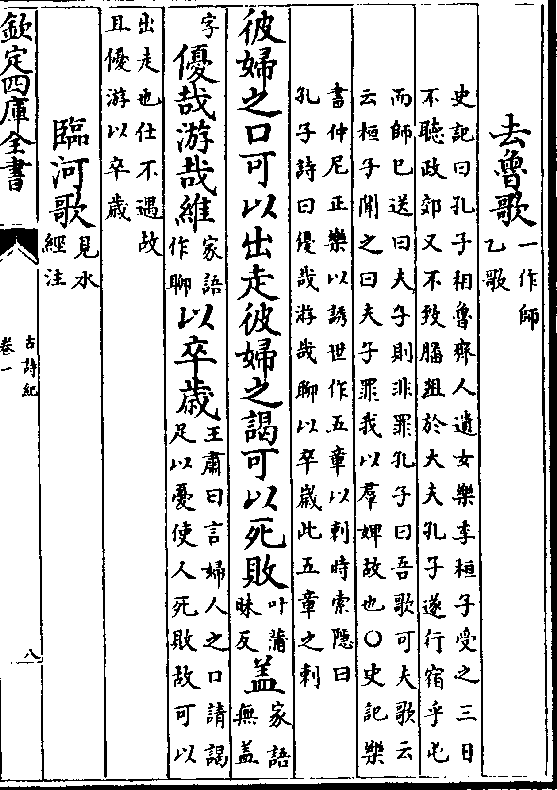 去魯歌一作師乙歌
史記曰孔子相魯齊人遺女樂季桓子受之三日
不聽政郊又不致膰俎於大夫孔子遂行宿乎屯
而師已送曰夫子則非罪孔子曰吾歌可夫歌云
云桓子聞之曰夫子罪我以羣婢故也○史記樂
書仲尼正樂以誘世作五章以刺時索隱曰
孔子詩曰優哉游哉聊以卒歲此五章之刺
彼婦之口可以出走彼婦之謁可以死敗叶蒲昧反蓋家語無蓋
字優哉游哉維家語作聊以卒歲王肅曰言婦人之口請謁足以憂使人死敗故可以
出走也仕不遇故且優游以卒歲
臨河歌見水經注
欽定四庫全書
古詩紀
卷一
八